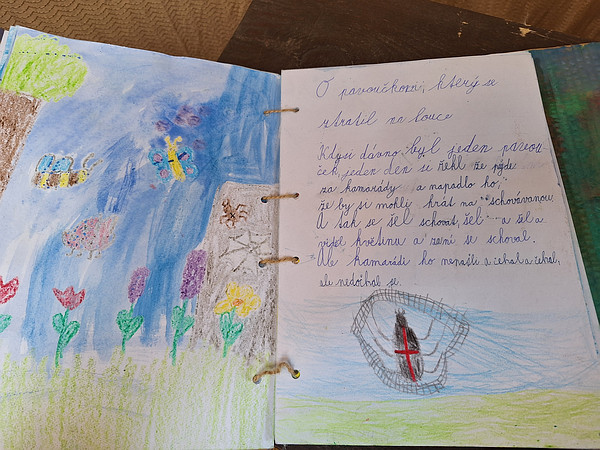 O pavoučkovi, který se
ztratil na louce
Kdysi dávno byl jeden pavou
ček, jeden den si řekl že půjde
za kamarády a napadlo ho,
že by si mohli hrát na "schovávanou.
A tak se šel schovat, šel a šel a
viděl květinu a za ní se schoval.
Ale kamarádi ho nenašli a čekal a čekal,
ale nedočkal se.